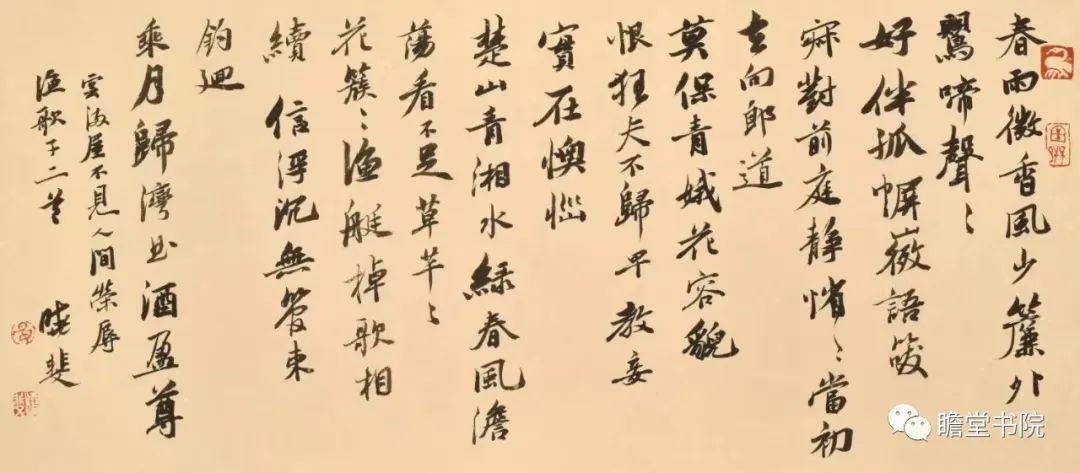 春雨微香風少簾外
鸎啼聲〻
好伴孤幈微語咲
寂對前庭静悄〻當初
去向郎道
莫保青娥花容貌
恨狂夫不歸早教妾
實在懊惱
楚山青湘水綠春風澹
蕩看不足草芊〻
花簇〻漁艇棹歌相
續 信浮沉無管束
釣迴
乘月歸灣曲酒盈尊
雲滿屋不見人間榮辱
漁歌子二首 曉斐
瞻堂书院